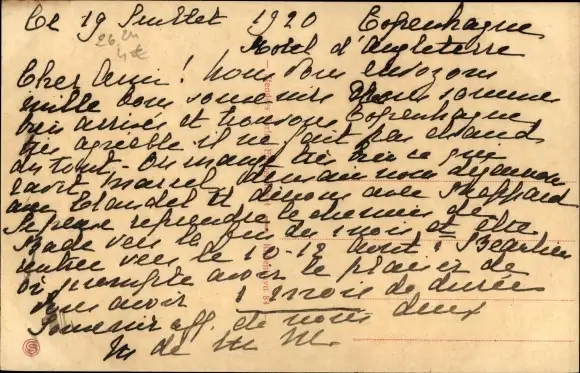 Ce 19 Juillet 1920 Copenhague
Hotel d'Angleterre
Cher Ami! Nous vous envoyons
mille bons souvenirs Nous sommes
bien arrivés et trouvons Copenhague
très agréble il ne fait pas chaud
du tout. On mange très bien ce que
ravit Marcel, demain nous déjeunons
au et dinons avec Sheppard
Je pense reprendre le chemin de
Bade vers la fin du mois et être
rentrée vers le 10-12 août à Beaulieu
où je compte avoir le plaisir de
vous avoir 1 mois de durée
Souvenir aff. de nous deux
M de M M.
26 24
4€